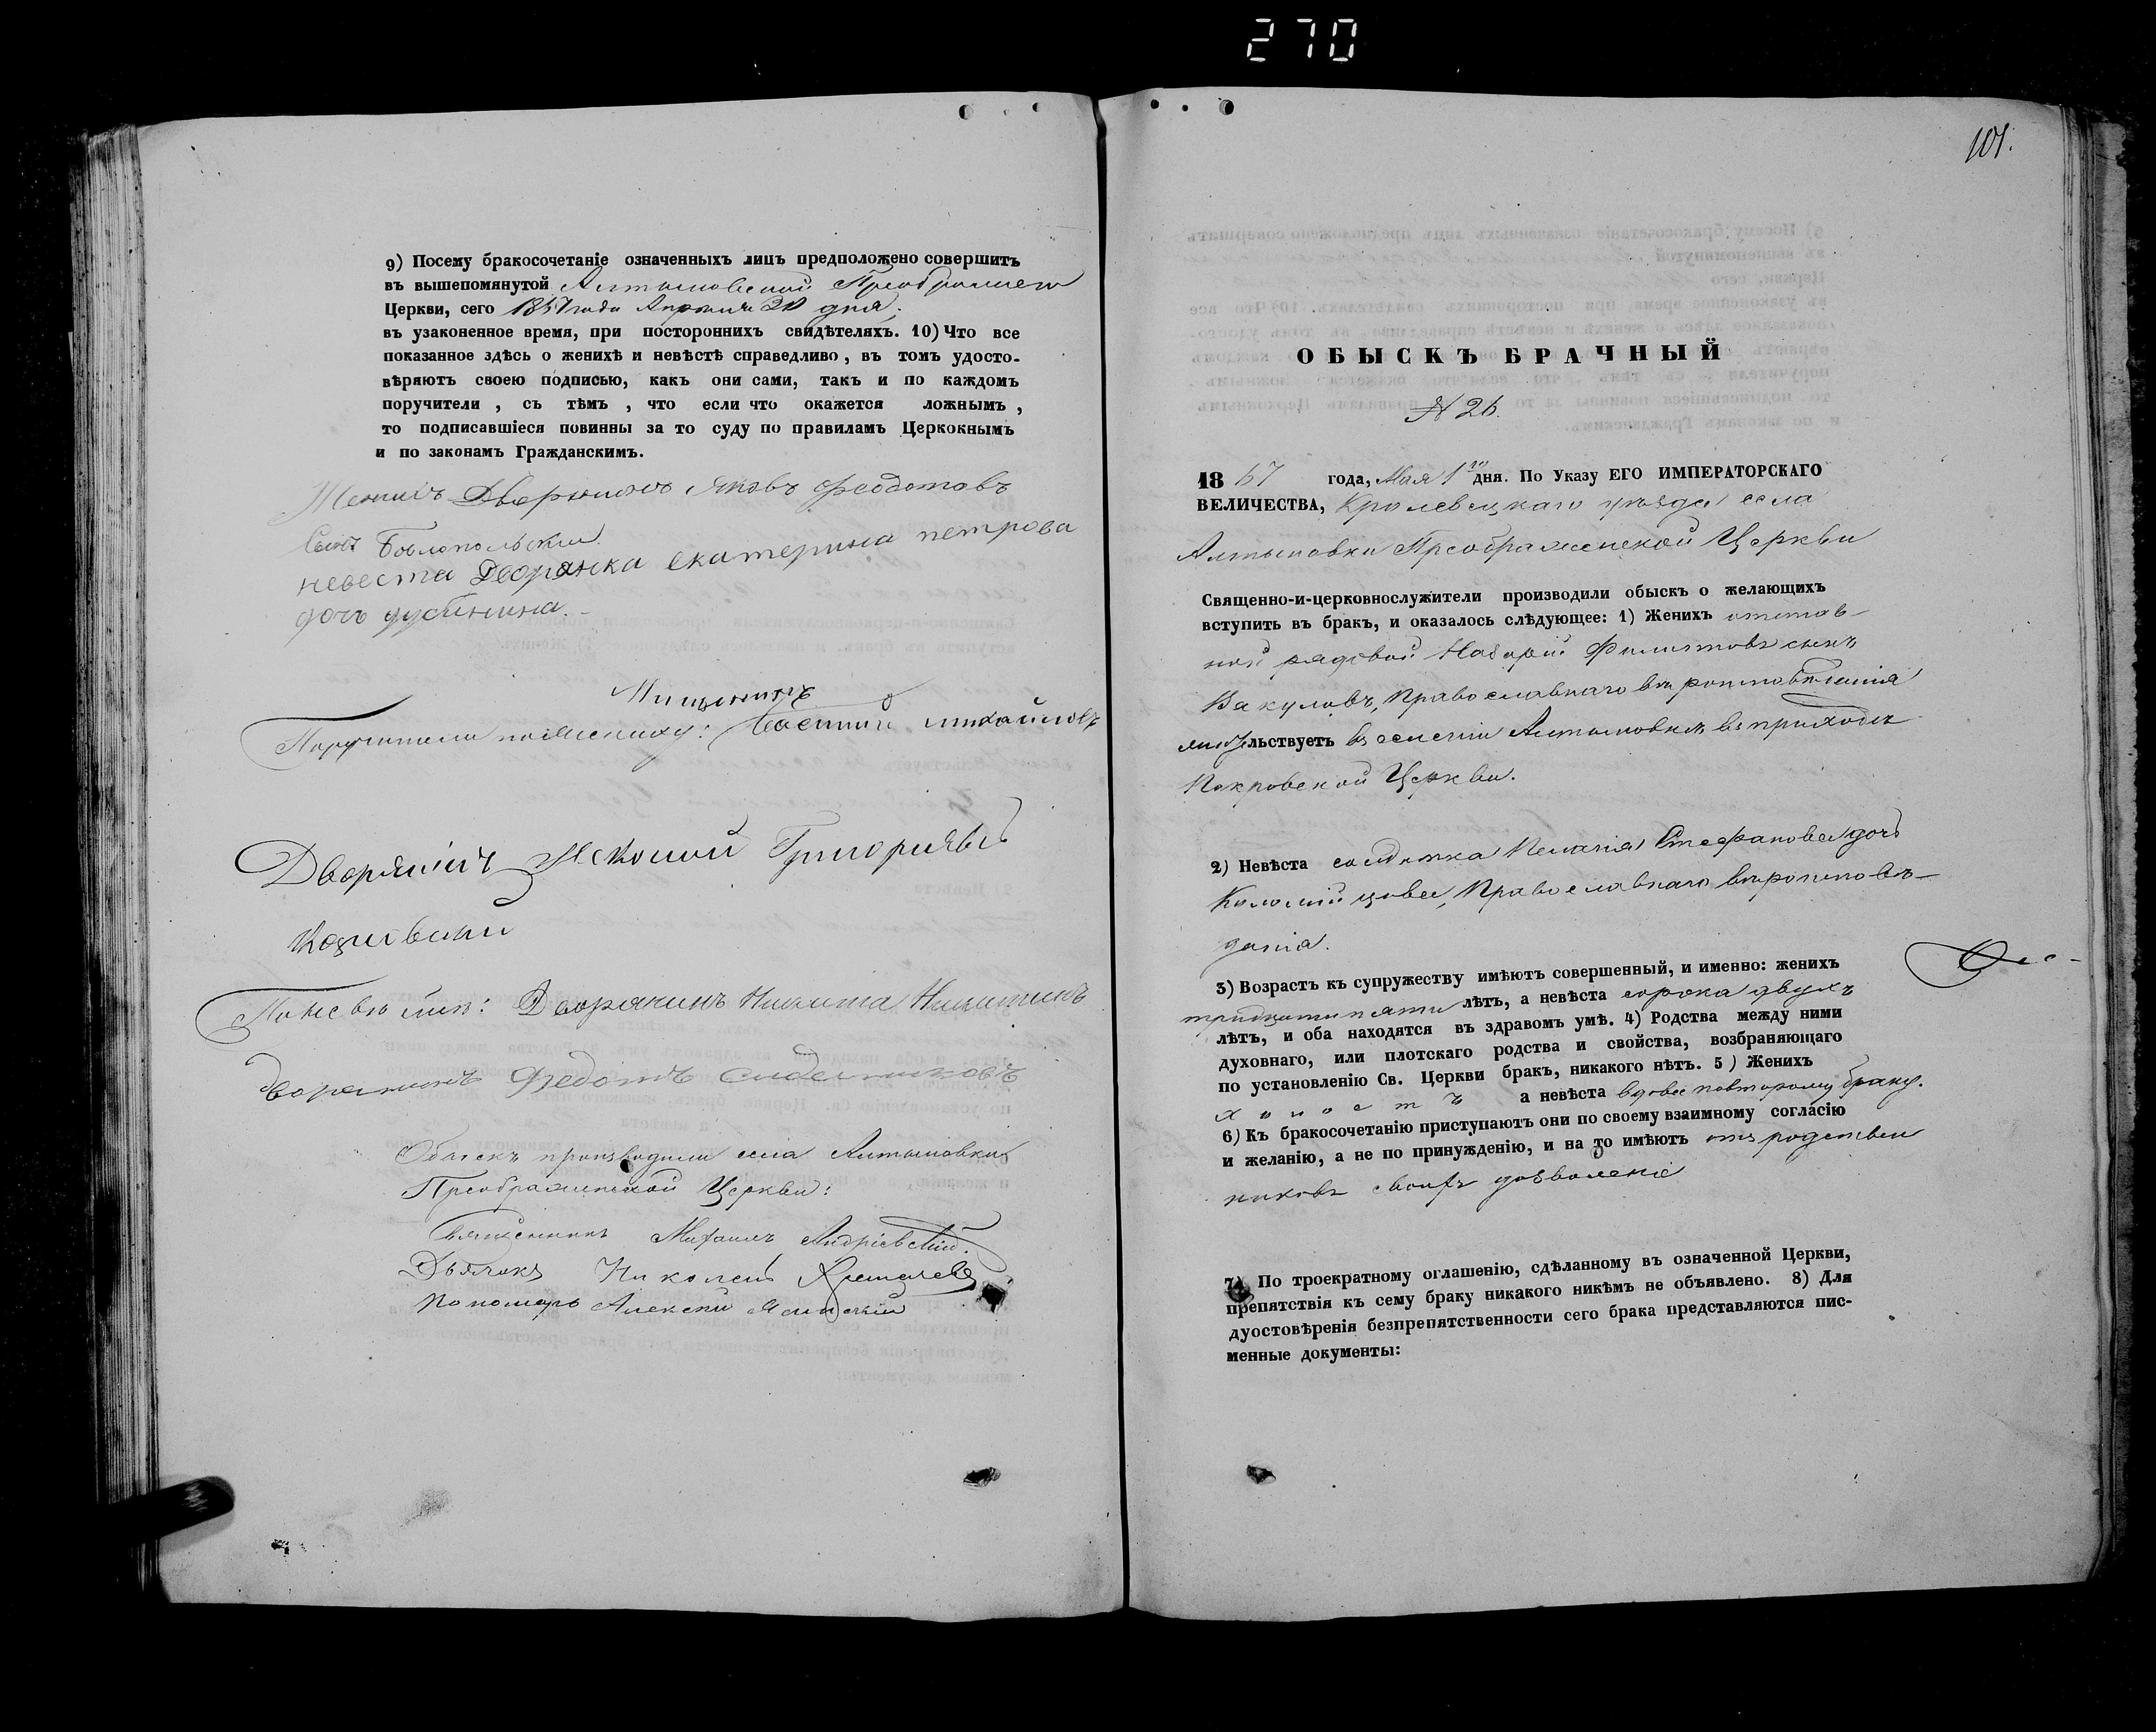 270
9) Посему бракосочетаніе означенныхъ лицъ предположено совершить
въ вышепомянутой Алтыновской Преображен
Церкви, сего 1867 года Апреля 30 дня,
въ узаконенное время, при постороннихъ свидѣтеляхъ. 10) Что все
показанное здѣсь о женихѣ и невѣстѣ справедливо, въ томъ удосто-
вѣряютъ своею подписью, какъ они сами, такъ и по каждомъ
поручители, съ тѣмъ, что если что окажется ложнымъ,
то подписавшіеся повинны за то суду по правиламъ Церкокнымъ
и по законамъ Гражданскимъ.
Женихъ Яковъ Федотовъ
Сынъ
невеста Дворянка екатерина петрова
дочь
Мищенинъ
Поручители по женихѣ: михайловъ
Дворянинъ
По невѣстѣ: Дворянинъ Никита Никитинъ
дворянинъ Федотъ
Обыскъ производили села Алтыновки
Преображенской Церкви:
Священникъ Михаилъ Андріевскій.
Дьячокъ Николай
Пономарь Алексей
101.
ОБЫСКЪ БРАЧНЫЙ
№ 26.
1867 года, Мая 1го дня. По Указу ЕГО ИМПЕРАТОРСКАГО
ВЕЛИЧЕСТВА, Кролевецкаго уѣзда села
Алтыновки Преображенской Церкви
Священно-и-церковнослужители производили обыскъ о желающихъ
вступить въ бракъ, и оказалось слѣдующее: 1) Женихъ отстав-
ной рядовой Назарій Филиповъ сынъ
Вакуловъ, Православнаго вѣроисповѣданія
жительствуетъ въ селеніи Алтыновкѣ въ приходѣ
Покровской Церкви.
2) Невѣста солдатка Пелагія Стефанова дочь
Коломійцова, Православнаго вѣроисповѣ-
данія.
3) Возрастъ къ супружеству имѣютъ совершенный, и именно: женихъ
тридцати пяти лѣтъ, а невѣста сорока двухъ
лѣтъ, и оба находятся въ здравомъ умѣ. 4) Родства между ними
духовнаго, или плотскаго родства и свойства, возбраняющаго
по установленію Св. Церкви бракъ, никакого нѣтъ. 5) Женихъ
холостъ а невѣста вдова по второму браку.
6) Къ бракосочетанію приступаютъ они по своему взаимному согласію
и желанію, а не по принужденію, и на то имѣютъ отъ родствен
никовъ своихъ дозволеніе
7) По троекратному оглашенію, сдѣланному въ означенной Церкви,
препятствія къ сему браку никакого никѣмъ не объявлено. 8) Для
дуостовѣренія безпрепятственности сего брака представляются пис-
менные документы: